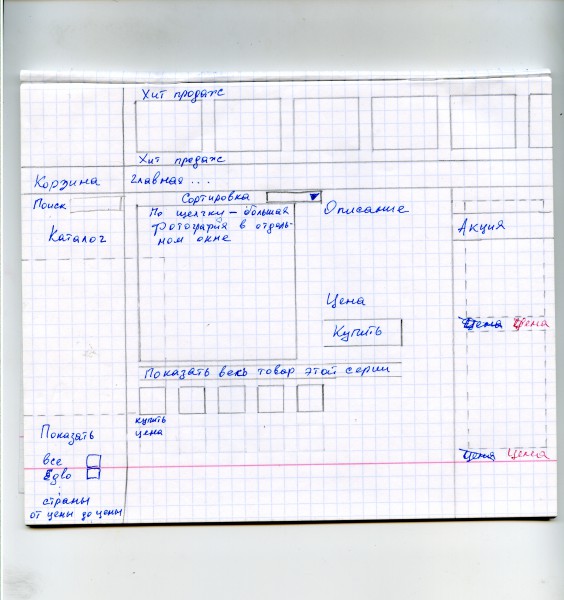 Хит продаж
Хит продаж
Корзина
Главная ...
Поиск
Сортировка
Каталог
По щелчку — большая
фотография в отдель-
ном окне
Описание
Акция
Цена
Купить
Цена Цена
Показать весь товар этой серии
купить
цена
Показать
все
страны
от цены до цены
Цена Цена